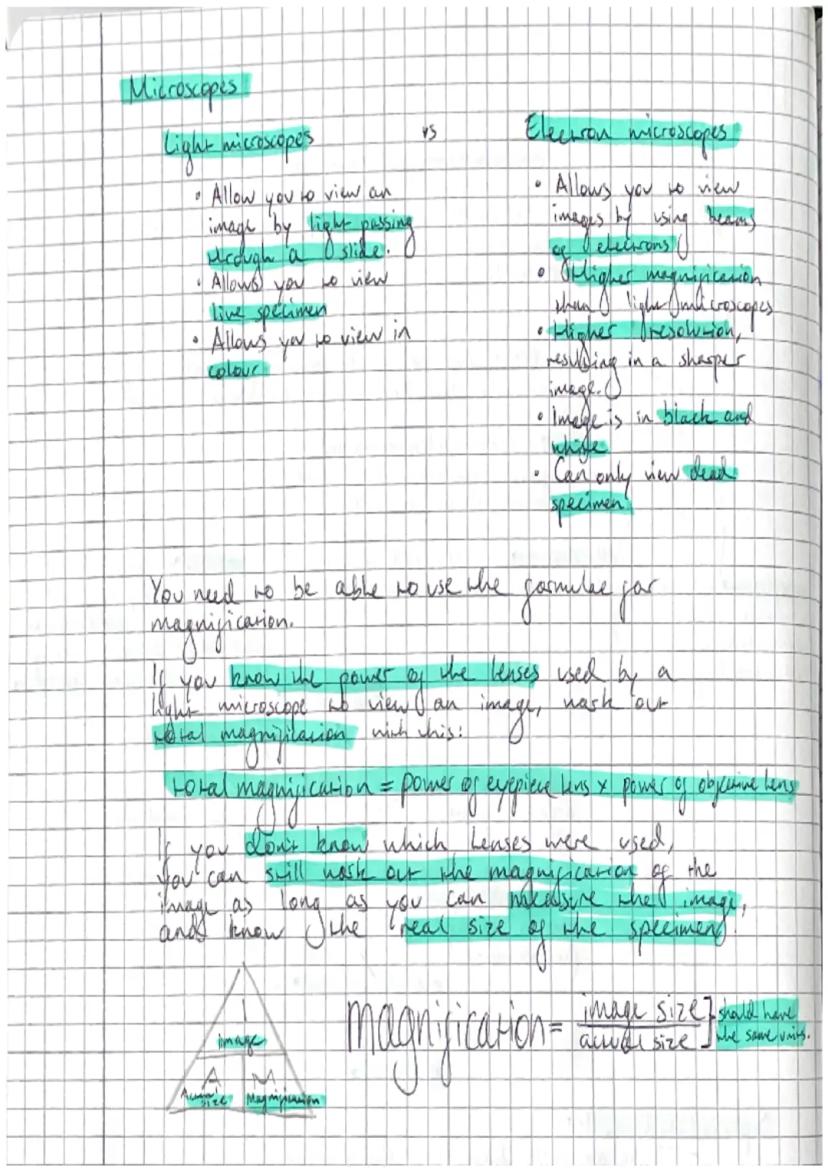 Microscopes
Light microscopes
vs
Electron microscopes
• Allow you to view an
image by light passing
through a slide.
• Allows you to view
live specimen
• Allows you to view in
colour
• Allows you to view
images by using beams
of electrons
• Higher magnification
than light microscopes
• Higher resolution,
resulting in a sharper
image.
• Image is in black and
white
• Can only view dead
specimen
You need to be able to use the formulae for
magnification.
If you know the power of the lenses used by a
light microscope to view an image, work out
total magnification with this:
total magnification = power of eyepiece lens x power of objective lens
If you don't know which lenses were used,
you can still work out the magnification of the
image as long as you can measure the image,
and know the real size of the specimen.
I
image
A M
Actual size Magnification
magnification = image size / actual size } should have
the same units.